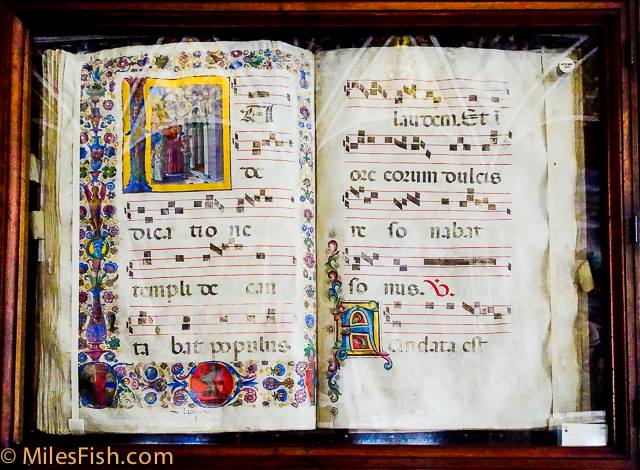 de
dica tio ne
templi de can
ta bat populus
laudem. Et i
ore eorum dulcis
re so nabat
so nus. V.
Fundata est
© MilesFish.com